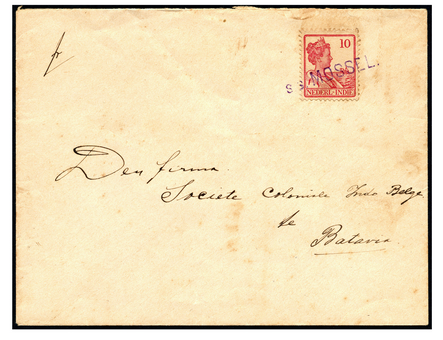 fr
10
SS MOSSEL.
NEDERL-INDIE
Den firma
Societe Coloniale Indo Belge
te
Batavia